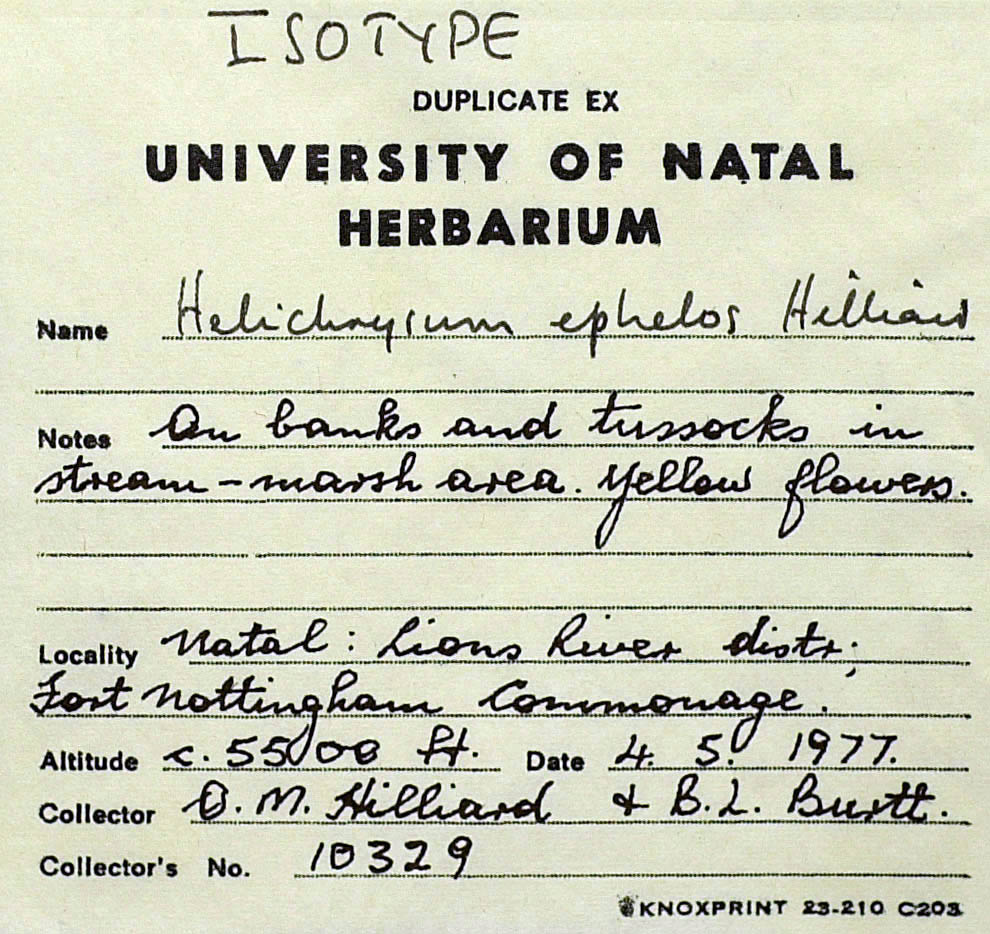 ISOTYPE
DUPLICATE EX
UNIVERSITY OF NATAL
HERBARIUM
Name Helichrysum ephelos Hilliard
Notes On banks and tussocks in
stream-marsh area. Yellow flowers.
Locality Natal: Lions River distr;
Fort Nottingham Commonage.
Altitude c. 5500 ft. Date 4. 5. 1977.
Collector O. M. Hilliard & B. L. Burtt.
Collector's No. 10329
KNOXPRINT 23-210 C203